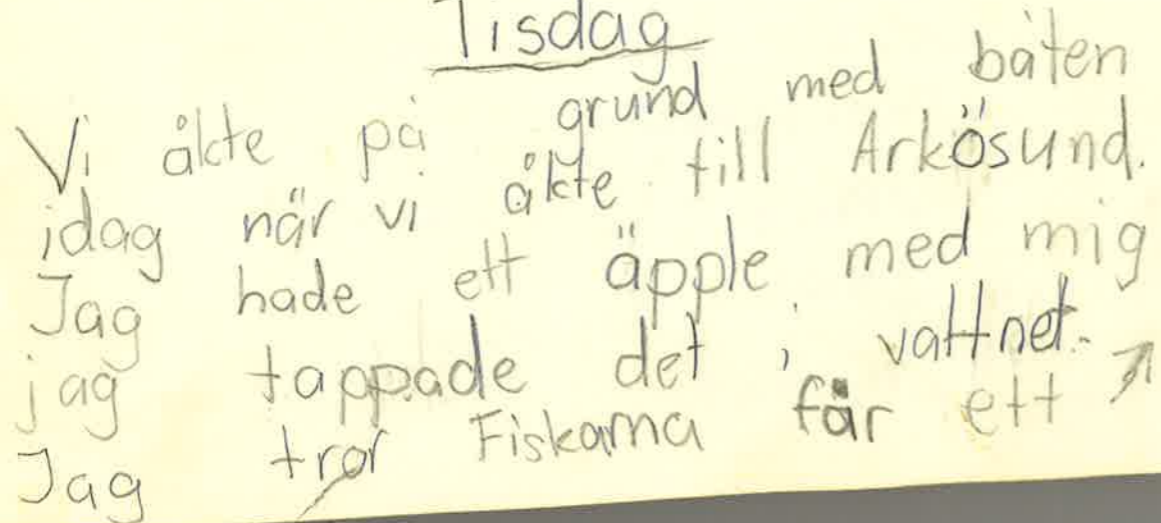 Tisdag
Vi åkte på grund med båten
idag när vi åkte till Arkösund.
Jag hade ett äpple med mig
jag tappade det i vattnet.
Jag tror Fiskarna får ett ↗